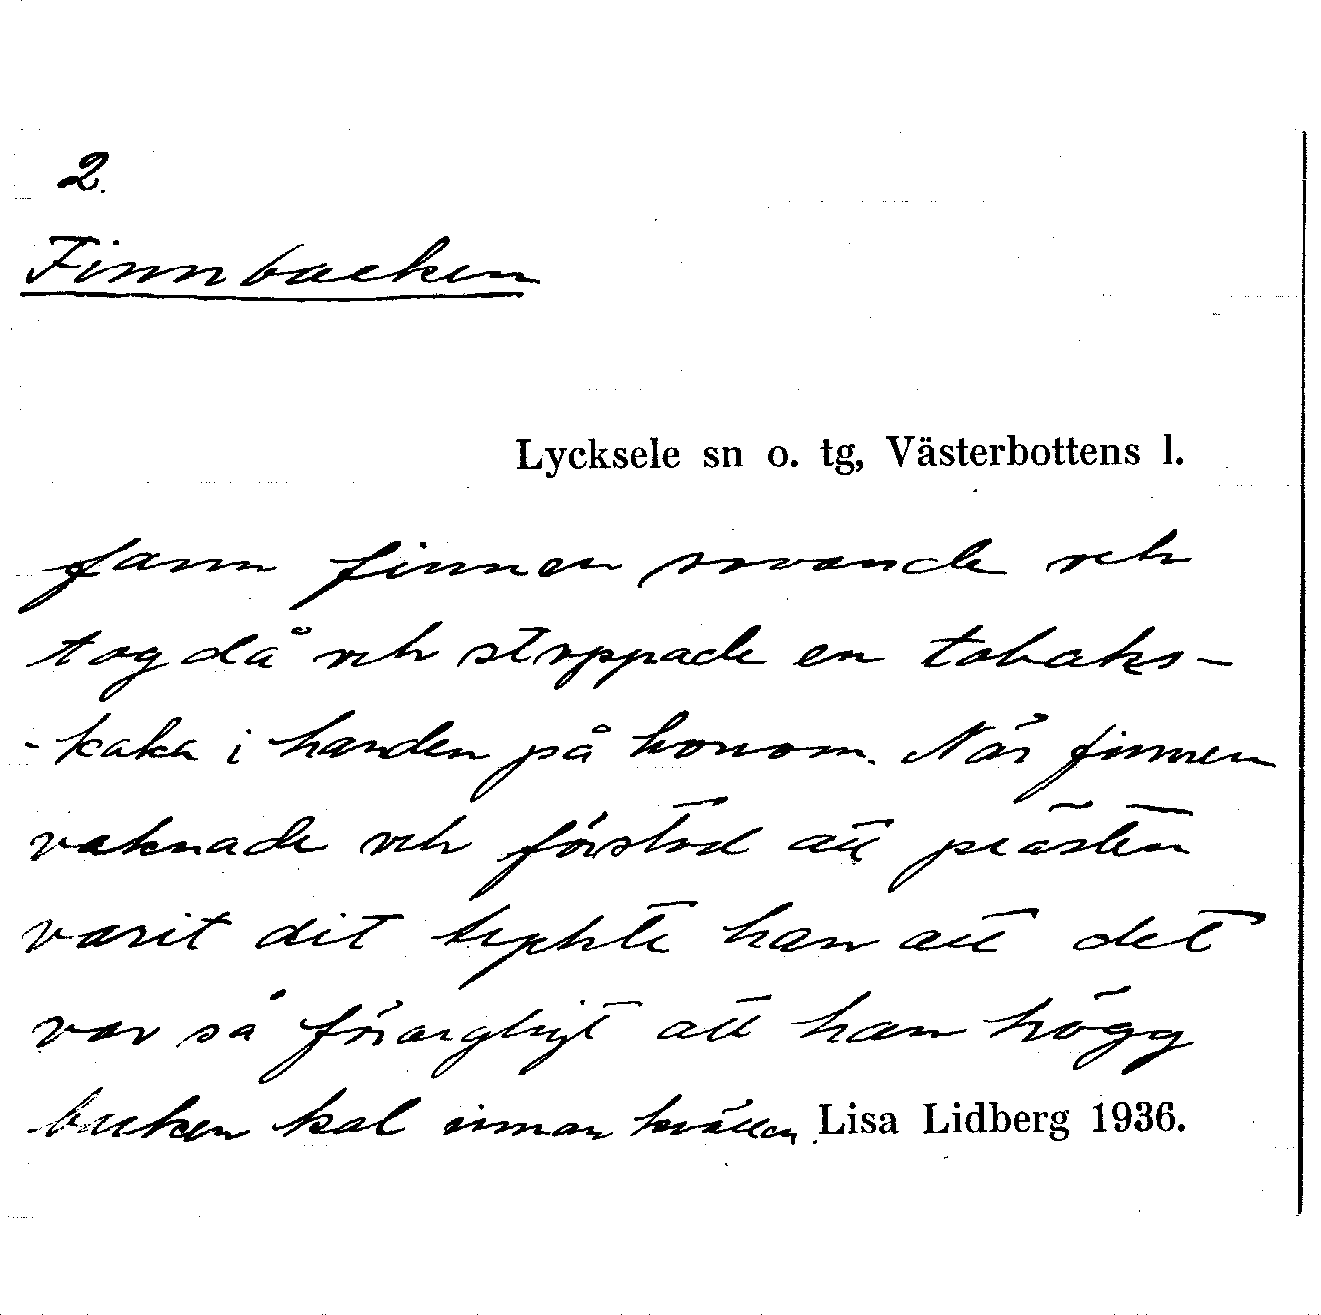 2.
Finnbacken
Lycksele sn o. tg, Västerbottens l.
fann finnen sovande och
tog då och stoppade en tobaks-
-kaka i handen på honom. När finnen
vaknade och förstod att prästen
varit dit tyckte han att det
var så förargligt att han högg
backen kal innan kvällen. Lisa Lidberg 1936.